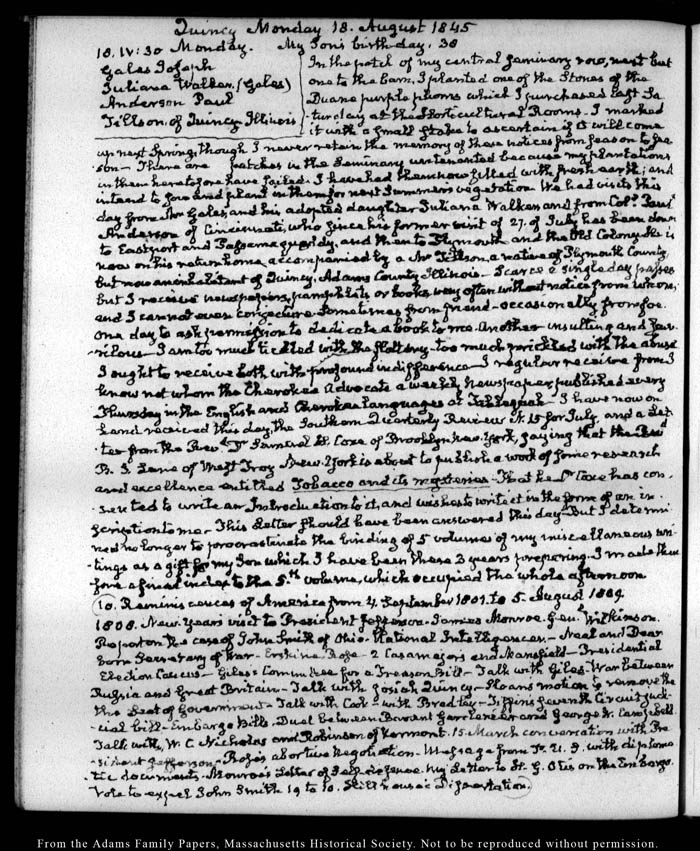 Quincy Monday 18. August 1845
18. IV:30 Monday. My Son's birthday. 38
Gales Joseph
Juliana Walker (Gales)
Anderson Paul
Tillson of Quincy Illinois
In the patch of my central Seminary row, next but
one to the barn, I planted one of the Stones of the
Duane purple plums which I purchased last Sa-
turday at the Horticultural Rooms. I marked
it with a small stake to ascertain if it will come
up next Spring, though I never retain the memory of these notices from season to sea-
son - There are patches in the Seminary untenanted because my plantations
in them heretofore have failed. I have had them now filled with fresh earth; and
intend to sow and plant in them for next Summer's vegetation. We had visits this
day from Mr Gales, and his adopted daughter Juliana Walker, and from Col. Paul
Anderson of Cincinnati, who since his former visit of 27. of July has been down
to Eastport and Passamaquoddy, and then to Plymouth and the Old Colony. He is
now on his return home, accompanied by a Mr Tillson, a native of Plymouth County,
but now an inhabitant of Quincy, Adams County, Illinois - Scarce a single day passes
but I receive newspapers, pamphlets or books very often without notice from whom,
and I cannot even conjecture. Sometimes from friend - occasionally from foe.
One day to ask permission to dedicate a book to me. Another insulting and scur-
rilous - I am too much tickled with the flattery - too much prickled with the abuse
I ought to receive both with profound indifference - I regular receive from I
know not whom the Cherokee Advocate a weekly Newspaper published every
Thursday in the English and Cherokee languages at Tahlequah - I have now on
hand received this day, the Southern Quarterly Review N. 15 for July, and a let-
ter from the Revd Dr Samuel H. Coxe of Brooklyn New York, saying that the Revd
B. I. Lane of West Troy New-York is about to publish a work of some research
and excellence entitled Tobacco and its mysteries - that he Dr Coxe has con-
sented to write an Introduction to it, and wishes to write it in the form of an in-
scription to me - This Letter should have been answered this day - But I determi-
ned no longer to procrastinate the binding of 5 volumes of my miscellaneous wri-
tings as a gift for my Son which I have been these 3 years preparing. I made there
fore a final index to the 5th volume, which occupied the whole afternoon
10. Reminiscences of America from 4. September 1801. to 5. August 1809.
1808. New Years visit to President Jefferson - James Monroe. Genl Wilkinson.
Report on the case of John Smith of Ohio. National Intelligencer - Neal and Dear
born Secretary of War - Erskine, Rose - 2 Casamajors and Mansfield - Presidential
Election Caucus - Giles's Committee for a Treason Bill - Talk with Giles - War between
Russia and Great Britain - Talk with Josiah Quincy - Sloans motion to remove the
the Seat of Government - Talk with Cook - with Bradley - Tiffins seventh Circuit judi-
cial bill - Embargo Bills. Duel between Barent Gardenier and George W. Campbell.
Talk with W. C. Nicholas and Robinson of Vermont. 15. March conversation with Pre-
sident Jefferson - Rose's abortive Negotiation - Message from P. U. S. with diploma
tic documents - Monroe's Letter of Self defence. My Letter to H. G. Otis on the Embargo.
Vote to expel John Smith 19 to 10. Hillhouse's Dissertation.
From the Adams Family Papers, Massachusetts Historical Society. Not to be reproduced without permission.